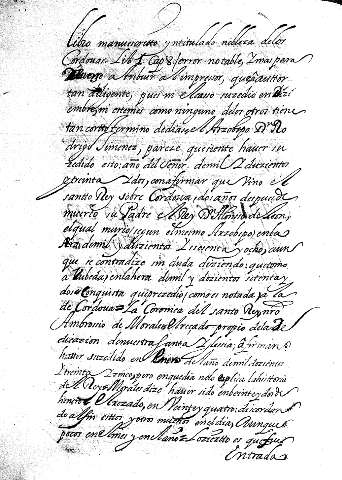 libro manuscrito, y titulado nobleza de los
Cordouas Lib 1. Cap 8, error notable, y mas para
atribuir a el impresor, que a autor
tan diligente, pues ni el caso sucedio en Di
ziembre, ni este mes como ninguno de los otros tiene
tan corto termino de dias, el Arzobispo Dn Ro
drigo Ximenez, pareze que siente hauer su
cedido esto, año del Señor de mil y duzientos
y treinta y dos, con afirmar que vino el
santto Rey sobre Cordoua, dos años despues de
muerto su Padre el Rey D Alonso de Leon,
el qual murio, segun el mismo Arzobispo, en la
Era de mil y duzientos y sesenta y ocho, aun
que se contradize sin duda, diziendo, que tomo
a Vbeda, en la hera de mil y dozientos setenta y
dos, Conquista que precedio, como es notado, a la
de Cordoua. La Coronica del santo Rey, y
Ambrosio de Morales, el rezado propio de la De
dicacion de nuestra santa Iglesia, afirman
hauer sucedido en Enero del año de mil dozientos
y treinta y, pero en que dia no explica la historia
del Rey, Morales dize hauer sido en veinte y dos de
el Rezado, en Veinte y quatro, discordan
do a sin estos, y otros muchos en el dia, Aunque
pocos en el mes, y en el año. Lo cierto es que fue
Entrada